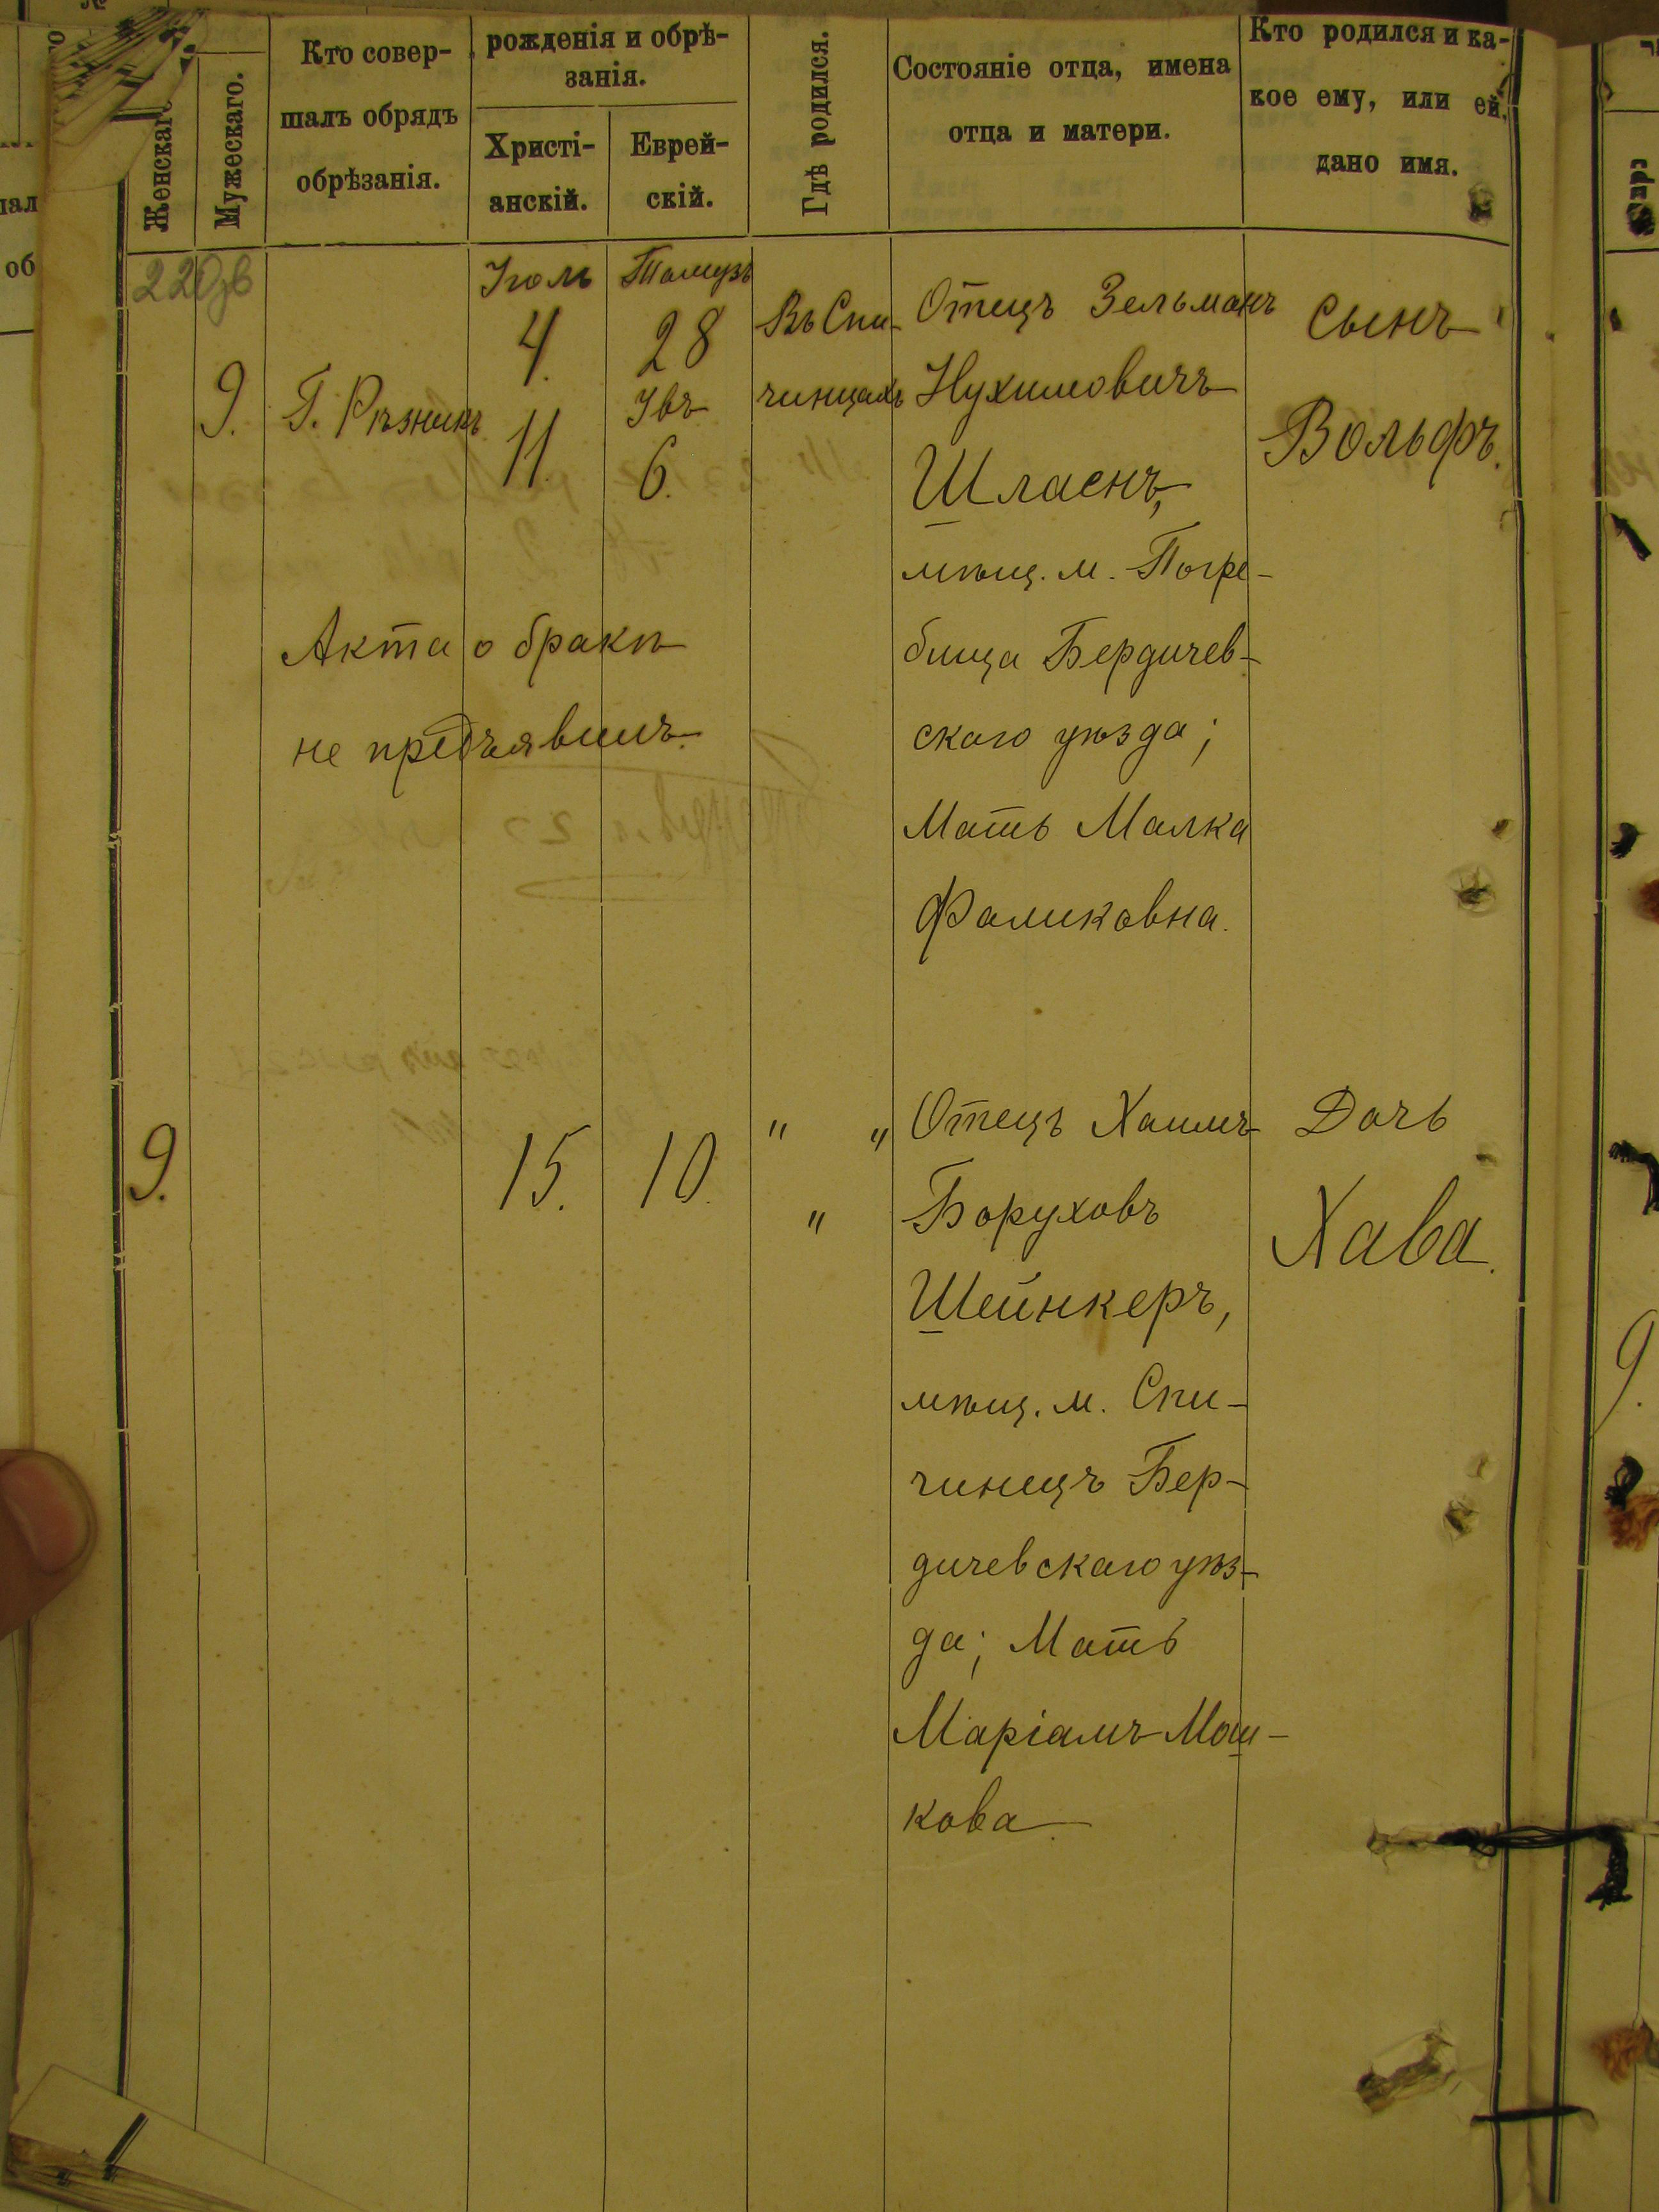 Женскаго
Мужескаго.
Кто совер-
шалъ обрядъ
обрѣзанія.
рожденія и обрѣ-
занія.
Христі-
анскій.
Еврей-
скій.
Гдѣ родился.
Состояніе отца, имена
отца и матери.
Кто родился и ка-
кое ему, или ей,
дано имя.
9.
Г. Рѣзникъ
Іюль
4.
11.
Тамузъ
28
Увъ
6.
Въ Спи-
чинцахъ
Отецъ Зельманъ
Нухимовичъ
Шлаенъ,
мѣщ. м. Погре-
бища Бердичев-
скаго уѣзда;
Мать Малка
Фаликовна.
Сынъ
Вольфъ.
Акта о бракѣ
не предъявилъ.
9.
15.
10.
" "
"
Отецъ Хаимъ
Боруховъ
Шейнкеръ,
мѣщ. м. Спи-
чинецъ Бер-
дичевскаго уѣз-
да; Мать
Маріамъ Мош-
кова.
Дочь
Хава.
9.